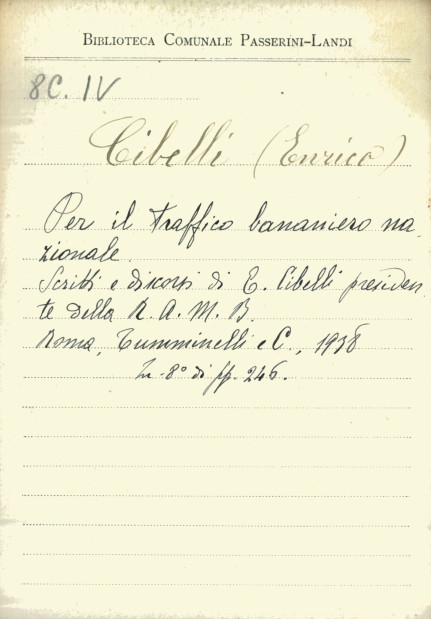 BIBLIOTECA COMUNALE PASSERINI-LANDI
8C. IV
Cibelli (Enrico)
Per il traffico bananiero na-
zionale.
Scritti e discorsi di E. Cibelli presiden-
te della R. A. M. B.
Roma, Tumminelli e C., 1938
In-8° di pp. 246.